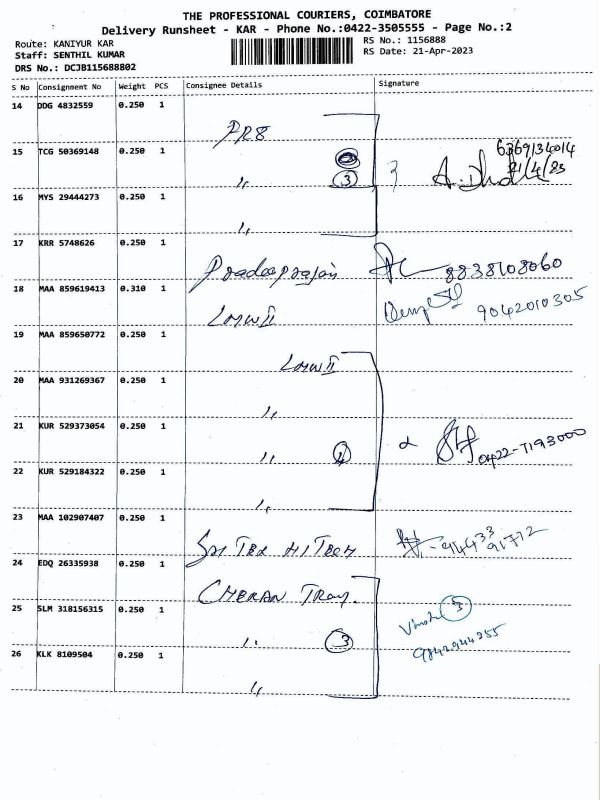 THE PROFESSIONAL COURIERS, COIMBATORE
Delivery Runsheet - KAR - Phone No.:0422-3505555 - Page No.:2
Route: KANIYUR KAR
Staff: SENTHIL KUMAR
DRS No.: DCJB115688802
RS No.: 1156888
RS Date: 21-Apr-2023
S No Consignment No Weight PCS Consignee Details Signature
14 DDG 4832559 0.250 1
PRB
15 TCG 50369148 0.250 1
6369134014
21/4/23
,, 3
16 MYS 29444273 0.250 1
,,
17 KRR 5748626 0.250 1
Pradeeprajan 8838108060
18 MAA 859619413 0.310 1
LMW II 9042010305
19 MAA 859650772 0.250 1
LMW II
20 MAA 931269367 0.250 1
,,
21 KUR 529373054 0.250 1
,, 4 0422-7193000
22 KUR 529184322 0.250 1
,,
23 MAA 102907407 0.250 1
Sri Tex HiTech 94433 91772
24 EDQ 26335938 0.250 1
CHERAN Tray.
25 SLM 318156315 0.250 1
,, 3 3
9842944255
26 KLK 8109504 0.250 1
,,